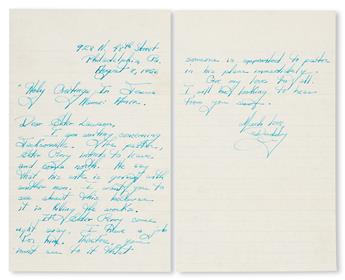 968 N. 48th Street
Philadelphia, Pa.
August 8, 1956
"Holy Greetings In Jesus
Name.
Dear Elder Lawson,
I am writing concerning
Jacksonville. The pastor,
Elder Perry wants to leave
and come north. He say
that his wife is going with
another man. I want you to
see about this because
it is killing the work.
If Elder Perry come
right away. I have a job
for him. Therefore, you
must see to it that
someone is appointed to pastor
in his place immediately.
Give my love to all.
I will be looking to hear
from you soon.
Much love,